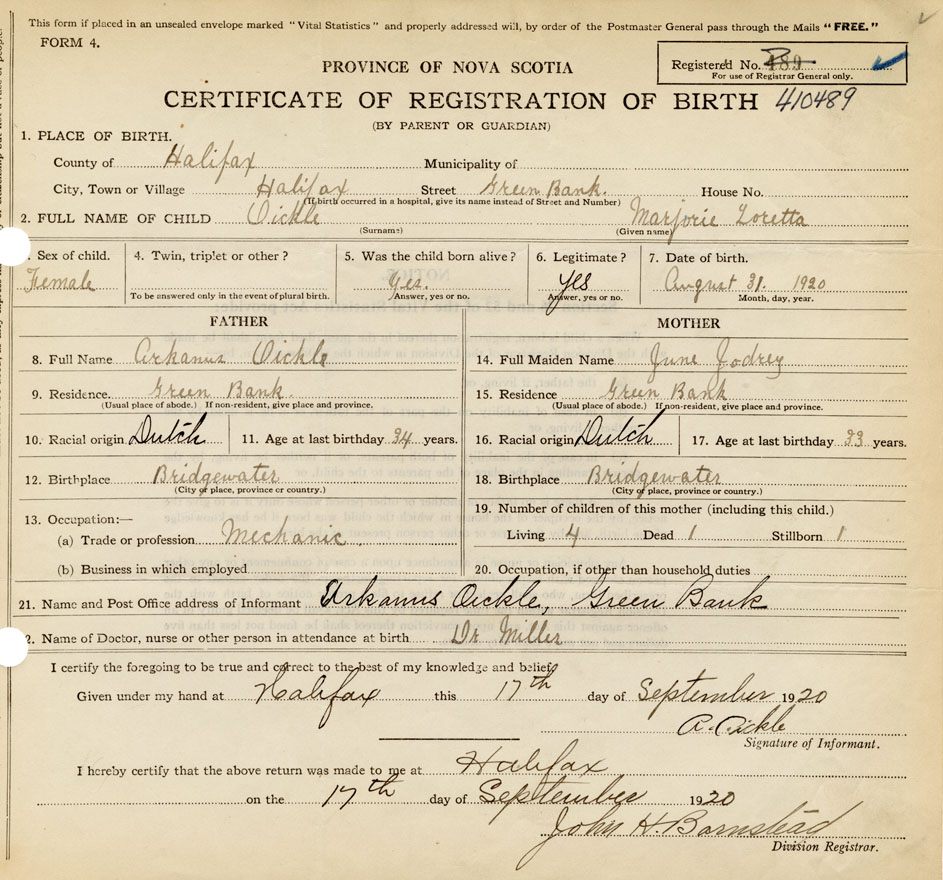 This form if placed in an unsealed envelope marked "Vital Statistics" and properly addressed will, by order of the Postmaster General pass through the Mails "FREE."
FORM 4.
Registered No. 489
For use of Registrar General only.
PROVINCE OF NOVA SCOTIA
CERTIFICATE OF REGISTRATION OF BIRTH 410489
(BY PARENT OR GUARDIAN)
1. PLACE OF BIRTH.
County of Halifax Municipality of
City, Town or Village Halifax Street Green Bank. House No.
(If birth occurred in a hospital, give its name instead of Street and Number)
2. FULL NAME OF CHILD Oickle Marjorie Loretta
(Surname) (Given name)
. Sex of child. 4. Twin, triplet or other? 5. Was the child born alive? 6. Legitimate? 7. Date of birth.
Female Yes. Yes August 31. 1920
To be answered only in the event of plural birth. Answer, yes or no. Answer, yes or no. Month, day, year.
FATHER MOTHER
8. Full Name Arkanus Oickle 14. Full Maiden Name June Jodrey
9. Residence. Green Bank. 15. Residence Green Bank
(Usual place of abode.) If non-resident, give place and province. (Usual place of abode.) If non-resident, give place and province.
10. Racial origin Dutch 11. Age at last birthday 34 years. 16. Racial origin Dutch 17. Age at last birthday 33 years.
12. Birthplace Bridgewater 18. Birthplace Bridgewater
(City or place, province or country.) (City or place, province or country.)
13. Occupation:— 19. Number of children of this mother (including this child.)
(a) Trade or profession Mechanic. Living 4 Dead 1 Stillborn 1
(b) Business in which employed 20. Occupation, if other than household duties
21. Name and Post Office address of Informant Arkanus Oickle, Green Bank
2. Name of Doctor, nurse or other person in attendance at birth Dr Miller
I certify the foregoing to be true and correct to the best of my knowledge and belief.
Given under my hand at Halifax this 17th day of September 1920
A. Oickle
Signature of Informant.
I hereby certify that the above return was made to me at Halifax
on the 17th day of September 1920
John H. Barnstead
Division Registrar.